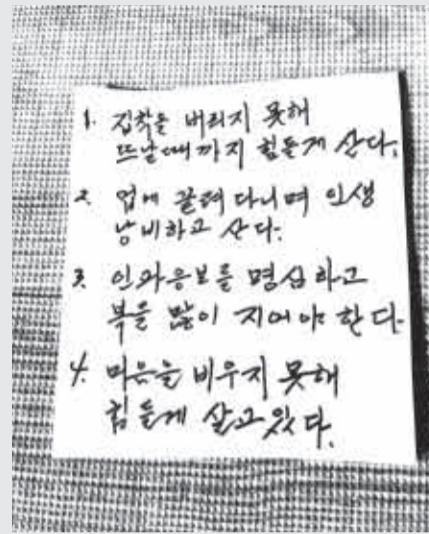 1. 집착을 버리지 못해
뜨날때까지 힘들게 산다.
2. 업에 끌려 다니며 인생
낭비하고 산다.
3. 인과응보를 명심하고
복을 많이 지어야 한다.
4. 마음을 비우지 못해
힘들게 살고있다.